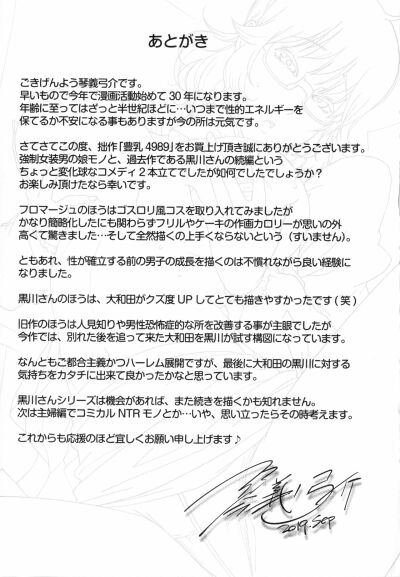 あとがき
ごきげんよう琴義弓介です。
早いもので今年で漫画活動始めて30年になります。
年齢に至ってはざっと半世紀ほどに…いつまで性的エネルギーを
保てるか不安になる事もありますが今の所は元気です。
さてさてこの度、拙作「豊乳4989」をお買上げ頂き誠にありがとうございます。
強制女装男の娘モノと、過去作である黒川さんの続編という
ちょっと変化球なコメディ2本立てでしたが如何でしたでしょうか?
お楽しみ頂けたなら幸いです。
フロマージュのほうはゴスロリ風コスを取り入れてみましたが
かなり簡略化したにも関わらずフリルやケーキの作画カロリーが思いの外
高くて驚きました…そして全然描くの上手くならないという（すいません）。
ともあれ、性が確立する前の男子の成長を描くのは不慣れながら良い経験に
なりました。
黒川さんのほうは、大和田がクズ度UPしてとても描きやすかったです(笑)
旧作のほうは人見知りや男性恐怖症的な所を改善する事が主眼でしたが
今作では、別れた後を追って来た大和田を黒川が試す構図になっています。
なんともご都合主義かつハーレム展開ですが、最後に大和田の黒川に対する
気持ちをカタチに出来て良かったかなと思っています。
黒川さんシリーズは機会があれば、また続きを描くかも知れません。
次は主婦編でコミカルNTRモノとか…いや、思い立ったらその時考えます。
これからも応援のほど宜しくお願い申し上げます♪
琴義弓介
2019.Sep